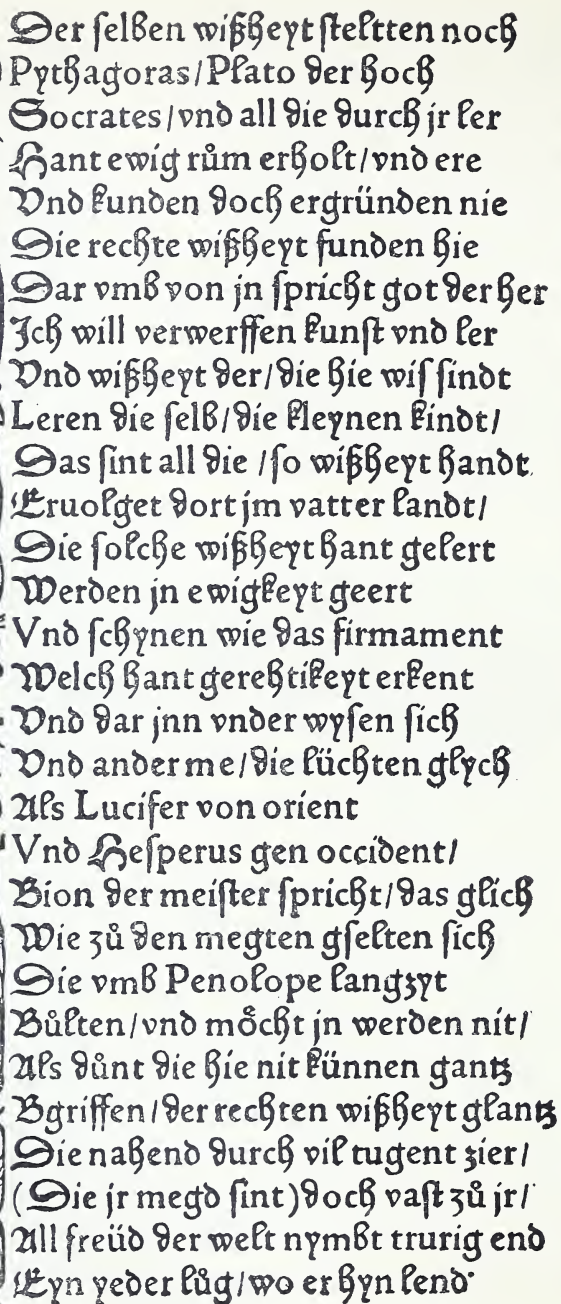 Der selben wißheyt steltten noch
Pythagoras/Plato der hoch
Socrates/vnd all die durch jr ler
Hant ewig rům erholt/vnd ere
Vnd kunden doch ergründen nie
Die rechte wißheyt funden hie
Dar vmb von jn spricht got der her
Ich will verwerffen kunst vnd ler
Vnd wißheyt der/die hie wis sindt
Leren die selb/die kleynen kindt/
Das sint all die /so wißheyt handt
Eruolget dort jm vatter landt/
Die solche wißheyt hant gelert
Werden jn ewigkeyt geert
Vnd schynen wie das firmament
Welch hant gerehtikeyt erkent
Vnd dar jnn vnder wysen sich
Vnd ander me/die lüchten glych
Als Lucifer von orient
Vnd Hesperus gen occident/
Bion der meister spricht/das glich
Wie zů den megten gselten sich
Die vmb Penolope langzyt
Bůlten/vnd mőcht jn werden nit/
Als důnt die hie nit künnen gantz
Bgriffen/der rechten wißheyt glantz
Die nahend durch vil tugent zier/
(Die jr megd sint)doch vast zů jr/
All freüd der welt nymbt trurig end
Eyn yeder lůg/wo er hyn lend